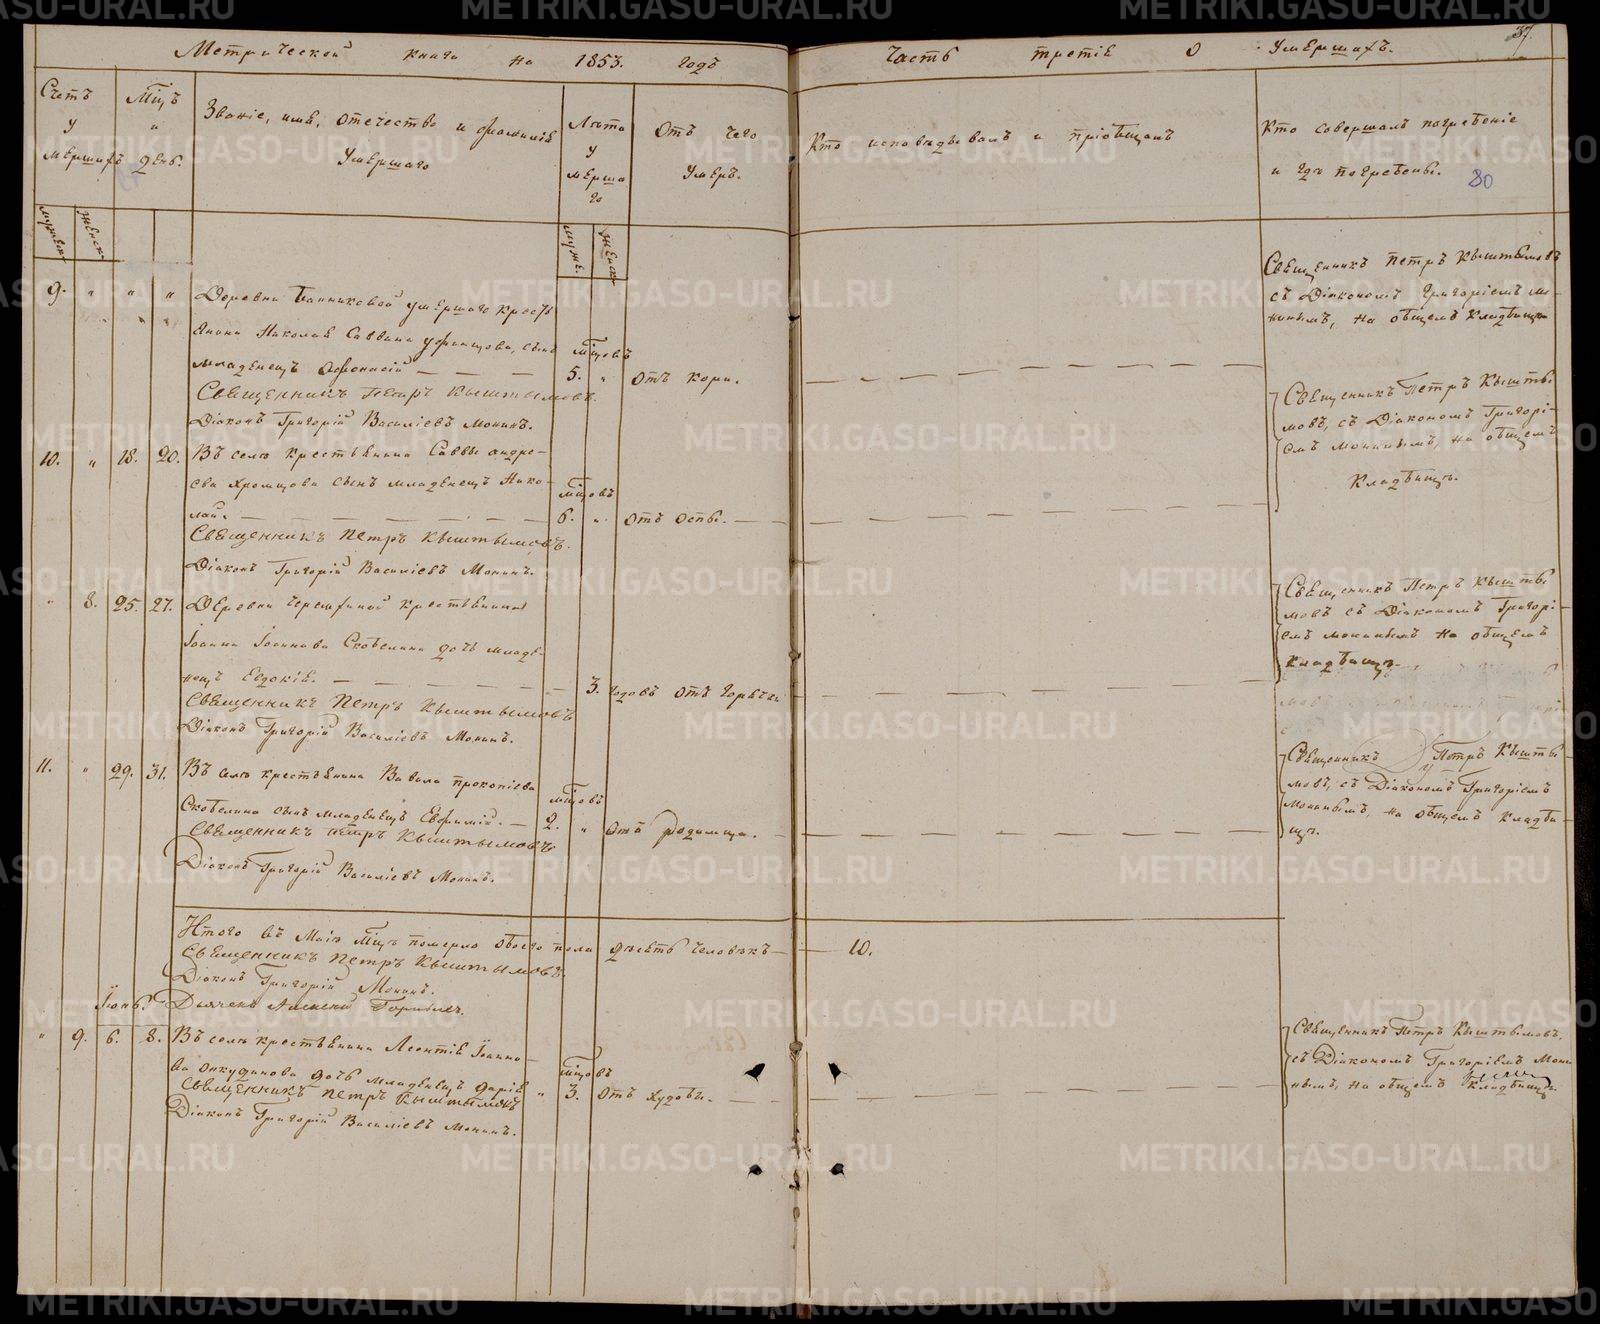 Метрической книги на 1853. годъ
Часть третія о умершихъ.
37.
Счетъ умершихъ
Мцъ и день.
Званіе, имя, отечество и фамилія умершаго
Лѣта умершаго
Отъ чего умеръ.
Кто исповѣдывалъ и пріобщалъ
Кто совершалъ погребеніе и гдѣ погребены.
80
мужеск.
женск.
муже.
женск.
9. " " "
Деревни умершаго кресть
янина Николая Саввина сынъ
младенецъ Афонасій
мцовъ
5. " отъ кори.
Священникъ Петръ Кыштымовъ.
Діаконъ Григорій Васильевъ Мокинъ.
Священникъ Петръ Кыштымовъ
съ Діакономъ Григоріемъ Мо-
кинымъ, на общемъ кладбищѣ
10. " 18. 20.
Въ селѣ крестьянина Саввы андре-
ева Хромцова сынъ младенецъ Нико-
лай.
мцовъ
6. " отъ оспы.
Священникъ Петръ Кыштымовъ.
Діаконъ Григорій Васильевъ Мокинъ.
Священникъ Петръ Кышты-
мовъ, съ Діакономъ Григорі-
емъ Мокинымъ, на общемъ
кладбищѣ.
" 8. 25. 27.
Деревни крестьянина
Іоанна Іоаннова Скобелина дочь младе-
нецъ Евдокія.
3. годовъ отъ горячки
Священникъ Петръ Кыштымовъ
Діаконъ Григорій Васильевъ Мокинъ.
Священникъ Петръ Кышты
мовъ съ Діакономъ Григорі-
емъ Мокинымъ на общемъ
кладбищѣ.
11. " 29. 31.
Въ селѣ крестьянина Вавила прокопіева
Скобелина сынъ младенецъ Евфимій.
мцовъ
2. " отъ родимца.
Священникъ Петръ Кыштымовъ
Діаконъ Григорій Васильевъ Мокинъ.
Священникъ Петръ Кышты-
мовъ, съ Діакономъ Григоріемъ
Мокинымъ, на общемъ кладби-
щѣ.
Итого въ Маіѣ Мцѣ померло обоего пола десять человѣкъ 10.
Священникъ Петръ Кыштымовъ.
Діаконъ Григорій Мокинъ.
Дьячекъ Алексей
Іюнь.
" 9. 6. 8.
Въ селѣ крестьянина Леонтія Іоанно-
ва Онкудинова дочь младенецъ Дарія
мцовъ
" 3. отъ худобы.
Священникъ Петръ Кыштымовъ
Діаконъ Григорій Васильевъ Мокинъ.
Священникъ Петръ Кыштымовъ,
съ Діакономъ Григоріемъ Моки
нымъ, на общемъ кладбищѣ.
METRIKI.GASO-URAL.RU